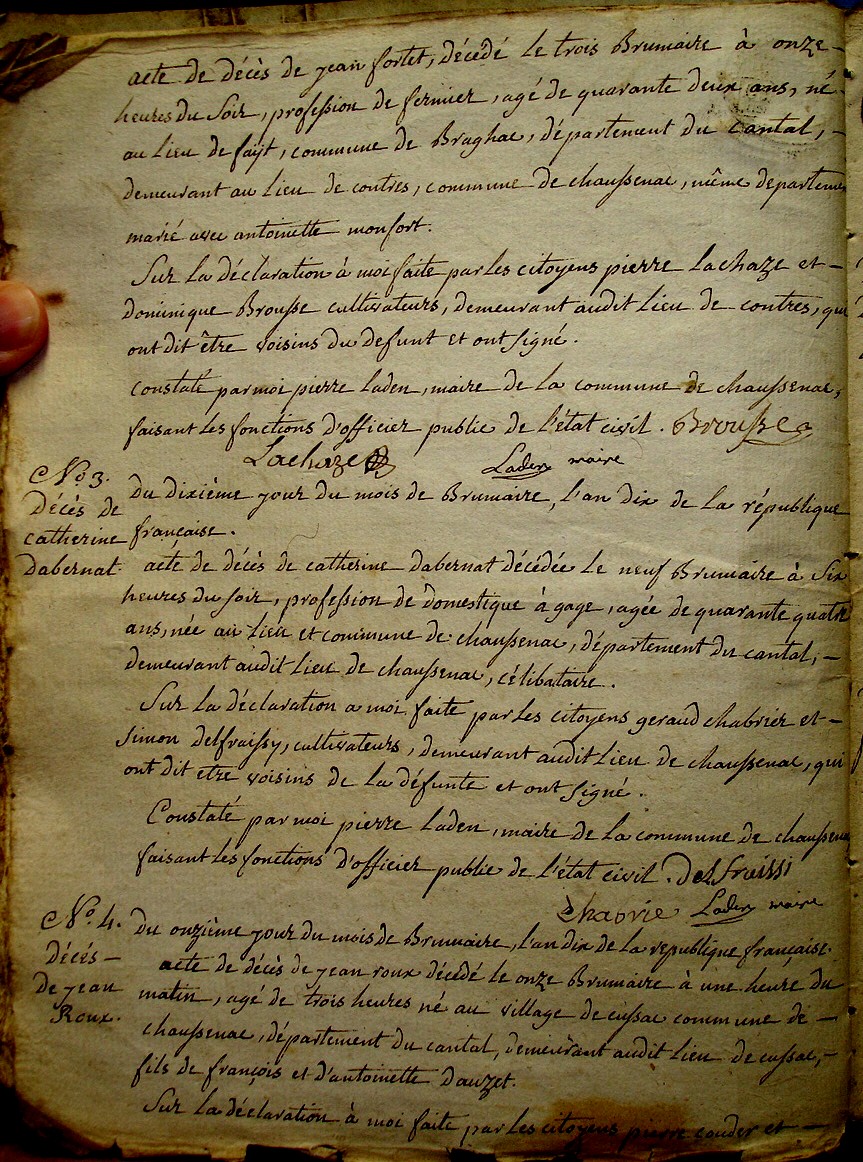 acte de décès de jean fortet, décédé le trois Brumaire à onze -
heures du Soir, profession de fermier, agé de quarante deux ans, né
au Lieu de fayt, commune de Braghac, département du cantal, -
demeurant au Lieu de contres, commune de chaussenac, même departeme
marié avec antoinette monfort.
Sur La déclaration à moi faite par Les citoyens pierre Lachaze et -
Dominique Brousse cultivateurs, demeurant audit Lieu de contres, qui
ont dit être voisins du defunt et ont signé.
Constaté par moi pierre Laden, maire de La commune de chaussenac,
faisant Les fonctions d'officier public de L'état civil. Brousse
Lachaze Laden maire
N.o 3.
Décès de
catherine
Dabernat.
du dixième jour du mois de Brumaire, L'an dix de La république
française.
acte de décès de catherine dabernat décédée Le neuf Brumaire à Six
heures du soir, profession de Domestique à gage, agée de quarante quatre
ans, née au Lieu et commune de chaussenac, département du cantal, -
demeurant audit Lieu de chaussenac, célibataire.
Sur La déclaration a moi faite par Les citoyens geraud chabrier et -
Simon delfraissy, cultivateurs, demeurant audit Lieu de chaussenac, qui
ont dit etre voisins de La défunte et ont signé.
Constaté par moi pierre Laden, maire de La commune de chaussena
faisant Les fonctions d'officier public de L'état civil. Delfraissi
chabrie Laden maire
N.o 4.
Décés -
de jean
Roux.
Du onzième jour du mois de Brumaire, L'an dix de La republique française.
acte de décès de jean roux décédé Le onze Brumaire à une heure du
matin, agé de trois heures né au village de cussac commune de -
chaussenac, département du cantal, demeurant audit Lieu de cussac, -
fils de françois et d'antoinette Dauzet.
Sur La déclaration à moi faite par Les citoyens pierre couder et -